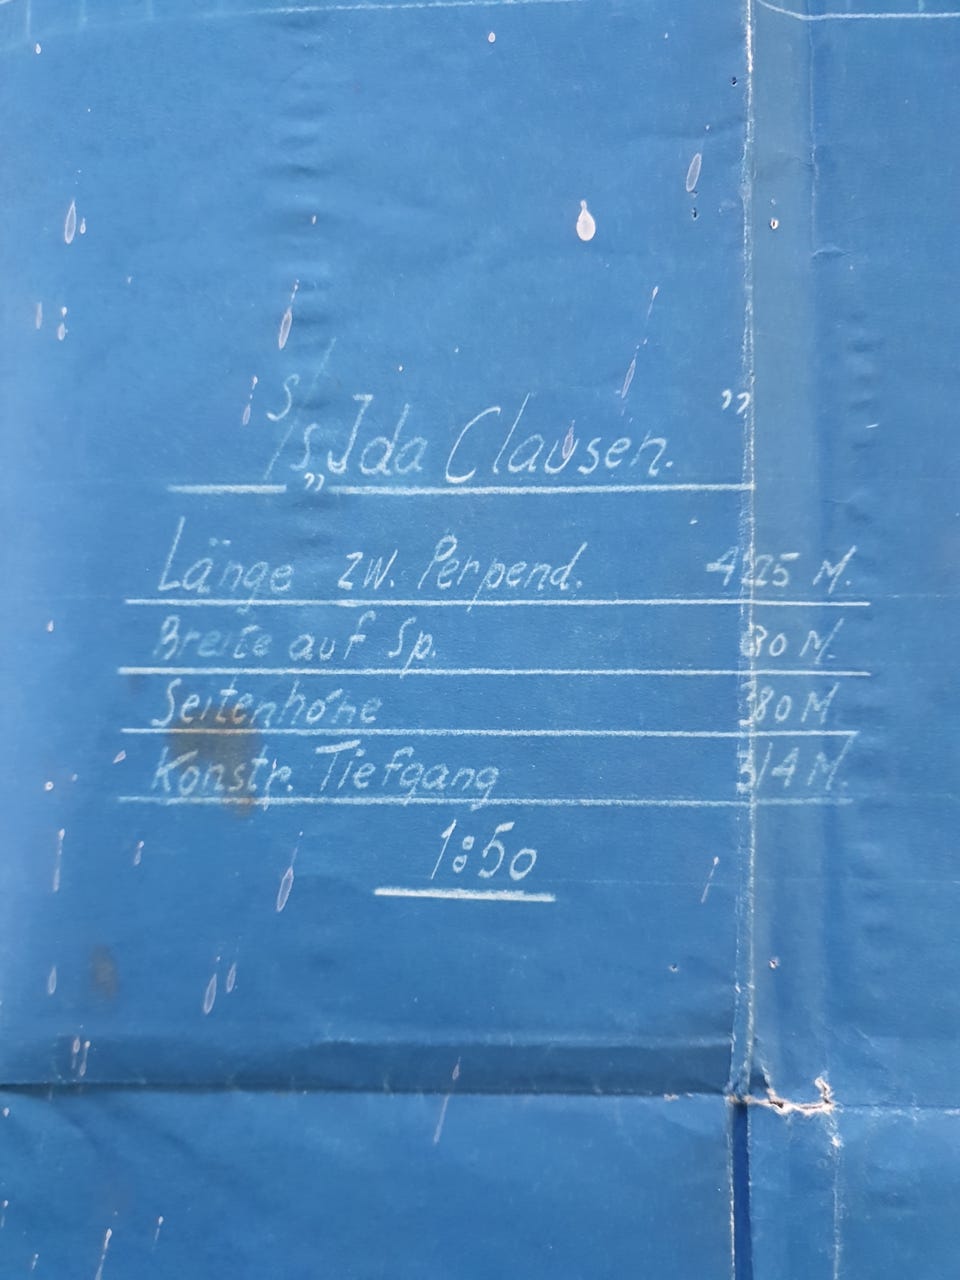 S/S „Ida Clausen."
Länge zw. Perpend. M.
Breite auf Sp. M.
Seitenhöhe M
Konstr. Tiefgang M.
1:50